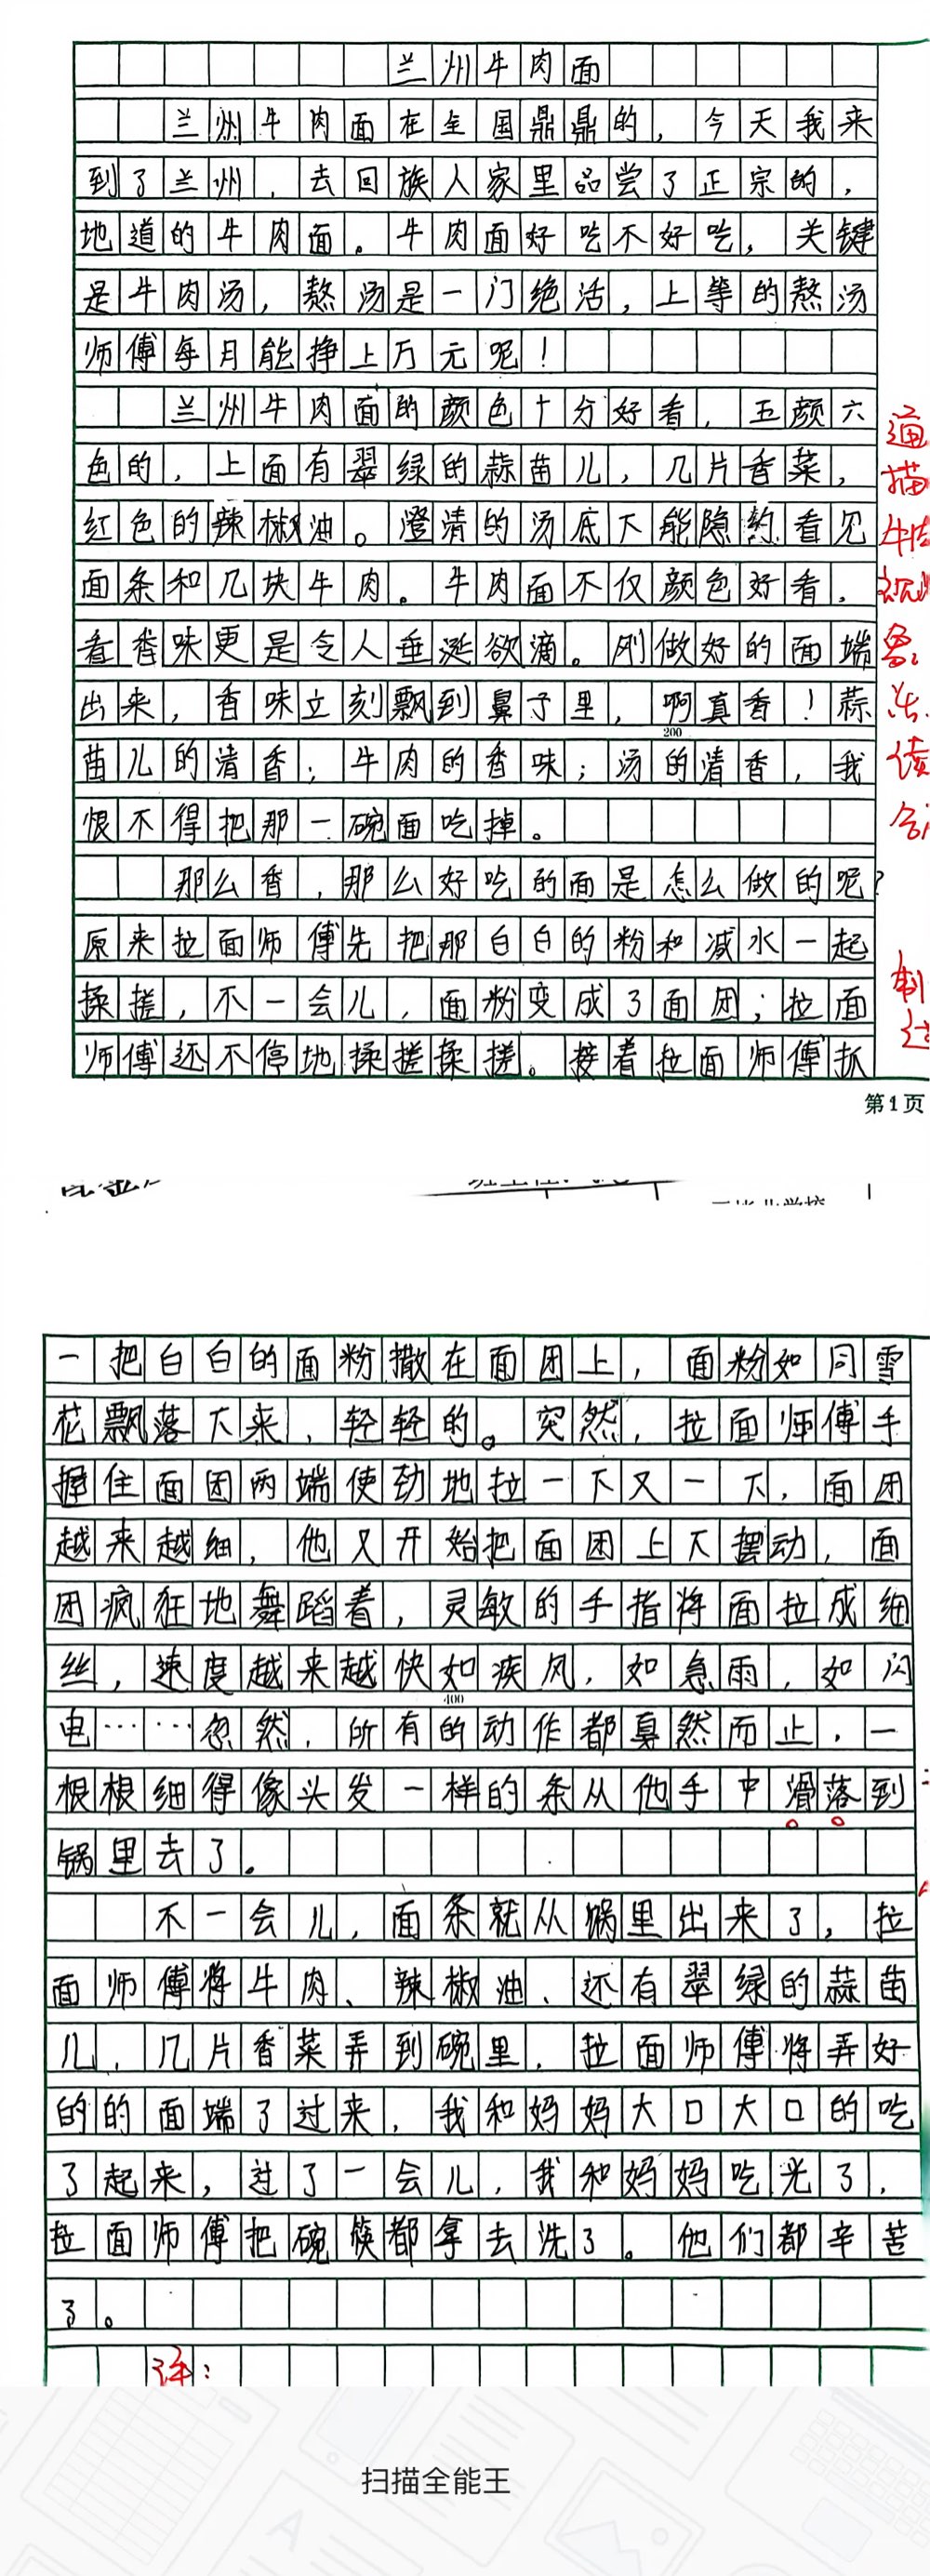 兰州牛肉面
兰州牛肉面在全国鼎鼎的，今天我来
到了兰州，去回族人家里品尝了正宗的，
地道的牛肉面。牛肉面好吃不好吃，关键
是牛肉汤，熬汤是一门绝活，上等的熬汤
师傅每月能挣上万元呢！
兰州牛肉面的颜色十分好看，五颜六
色的，上面有翠绿的蒜苗儿，几片香菜，
红色的辣椒油。澄清的汤底下能隐约看见
面条和几块牛肉。牛肉面不仅颜色好看，
看香味更是令人垂涎欲滴。刚做好的面端
出来，香味立刻飘到鼻子里，啊真香！蒜
200
苗儿的清香；牛肉的香味；汤的清香，我
恨不得把那一碗面吃掉。
那么香，那么好吃的面是怎么做的呢？
原来拉面师傅先把那白白的粉和减水一起
揉搓，不一会儿，面粉变成了面团；拉面
师傅还不停地揉搓揉搓。接着拉面师傅抓
第1页
一把白白的面粉撒在面团上，面粉如同雪
花飘落下来，轻轻的。突然，拉面师傅手
握住面团两端使劲地拉一下又一下，面团
越来越细，他又开始把面团上下摆动，面
团疯狂地舞蹈着，灵敏的手指将面拉成细
丝，速度越来越快如疾风，如急雨，如闪
400
电……忽然，所有的动作都戛然而止，一
根根细得像头发一样的条从他手中滑落到
锅里去了。
不一会儿，面条就从锅里出来了，拉
面师傅将牛肉、辣椒油、还有翠绿的蒜苗
儿，几片香菜弄到碗里，拉面师傅将弄好
的的面端了过来，我和妈妈大口大口的吃
了起来，过了一会儿，我和妈妈吃光了，
拉面师傅把碗筷都拿去洗了。他们都辛苦
了。
评：
扫描全能王